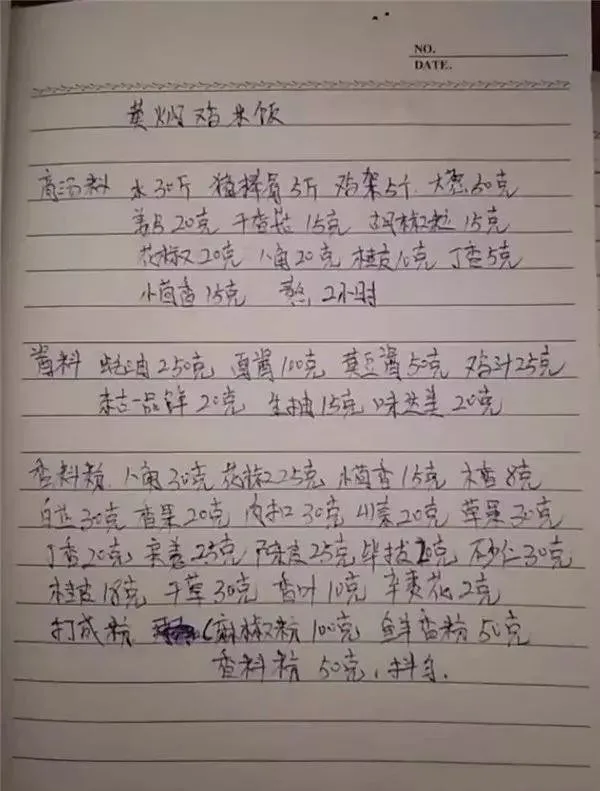 NO.
DATE.
黄焖鸡米饭
高汤料 水30斤 猪棒骨5斤 鸡架5个 大葱50克
姜片20克 干香菇15克 胡椒粒15克
花椒20克 八角20克 桂皮10克 丁香5克
小茴香15克 熬2小时
酱料 蚝油250克 面酱100克 黄豆酱50克 鸡汁25克
东古一品鲜20克 生抽15克 味达美20克
香料粉 八角30克 花椒25克 小茴香15克 木香8克
白芷30克 香果20克 肉扣30克 山柰20克 草果30克
丁香20克 良姜25克 陈皮25克 毕拔20克 砂仁30克
桂皮18克 干草30克 香叶10克 辛夷花2克
打成粉 (麻椒粉100克 鲜香粉50克
香料粉 50克,料